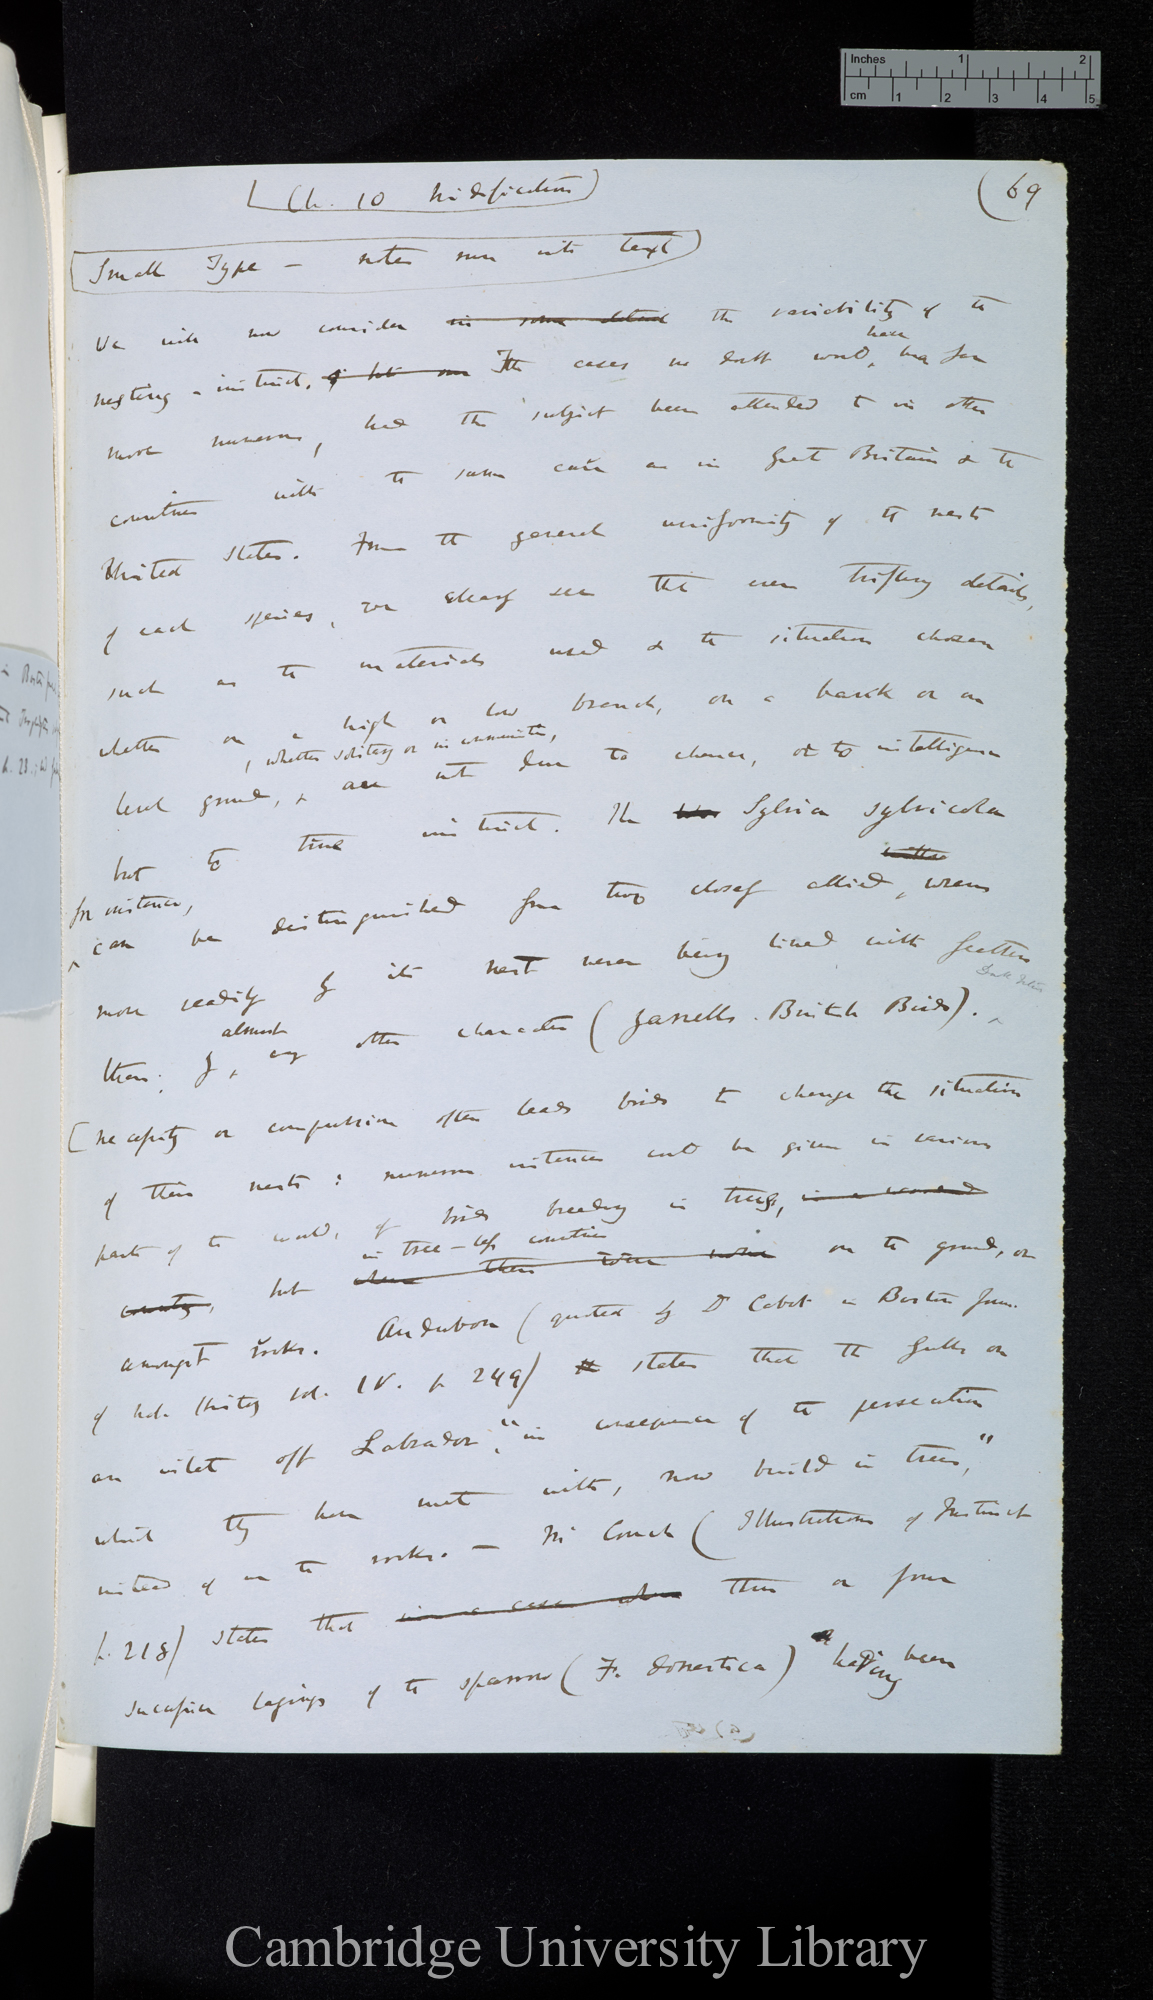 Inches 1 2
cm 1 2 3 4 5
Ch. 10 Nidification
(69
Small Type — notes run into text
We will now consider in some detail the variability of the
nesting-instinct, The cases no doubt would have been far
more numerous, had the subject been attended to in other
countries with the same care as in Great Britain & the
United States. From the general uniformity of the nests
of each species, we clearly see that even trifling details,
such as the materials used & the situation chosen
whether on a high or low branch, on a bank or on
, whether solitary or in communities,
level ground, are not due to chance, or to intelligence
but to true instinct. The Sylvia sylvicola
for instance,
can be distinguished from two closely allied wrens
more readily by its nest never being lined with feathers
than by almost any other character (Yarrell's British Birds).
[Necessity or compulsion often leads birds to change the situation
of their nests: numerous instances could be given in various
parts of the world, of birds breeding in trees, in a wooded
in tree-less countries
country, but when there were none on the ground, or
amongst rocks. Audubon (quoted by Dr Cabot in Boston Journ.
of Nat. History vol. IV. p 249) states that the Gulls on
an islet off Labrador, "in consequence of the persecution
which they have met with, now build in trees,"
instead of on the rocks. — Mr Couch (Illustrations of Instinct
p. 218) states that in a case when three or four
successive layings of the sparrow (F. domestica) having been
Cambridge University Library